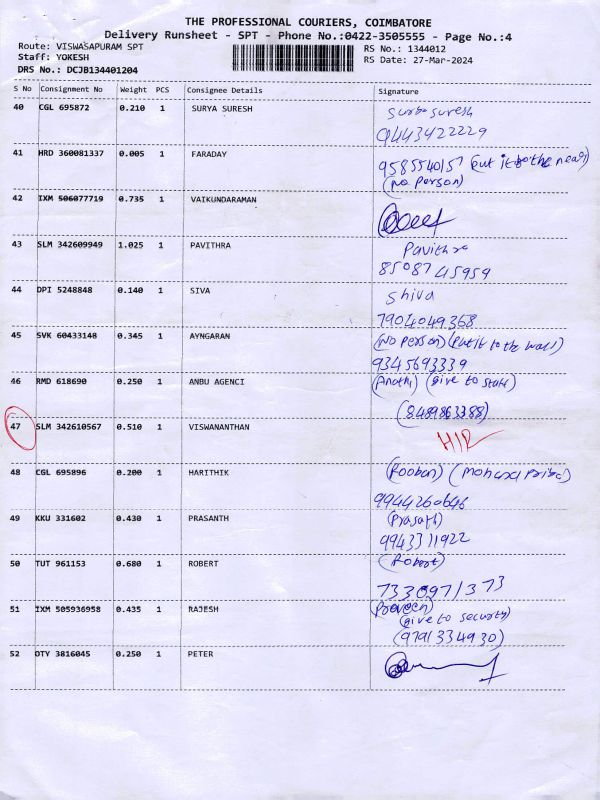 THE PROFESSIONAL COURIERS, COIMBATORE
Delivery Runsheet - SPT - Phone No.:0422-3505555 - Page No.:4
Route: VISWASAPURAM SPT
RS No.: 1344012
Staff: YOKESH
RS Date: 27-Mar-2024
DRS No.: DCJB134401204
S No Consignment No Weight PCS Consignee Details Signature
40 CGL 695872 0.210 1 SURYA SURESH
Surya suresh
9443422229
41 HRD 360081337 0.005 1 FARADAY
9585540157 (Put it to the near)
(no person)
42 IXM 506077719 0.735 1 VAIKUNDARAMAN
43 SLM 342609949 1.025 1 PAVITHRA
Pavithra
8508745959
44 DPI 5248848 0.140 1 SIVA
Shiva
7904049368
45 SVK 60433148 0.345 1 AYNGARAN
(No person) (Put it to the wall)
9345693339
46 RMD 618690 0.250 1 ANBU AGENCI
(give to staff)
(8489863388)
47 SLM 342610567 0.510 1 VISWANANTHAN
48 CGL 695896 0.200 1 HARITHIK
(Pooban) (Mohana Priya)
9944260646
49 KKU 331602 0.430 1 PRASANTH
9943311922
50 TUT 961153 0.680 1 ROBERT
(Robert)
7330971373
51 IXM 505936958 0.435 1 RAJESH
(Praveen)
(give to security)
(9791334930)
52 OTY 3816045 0.250 1 PETER